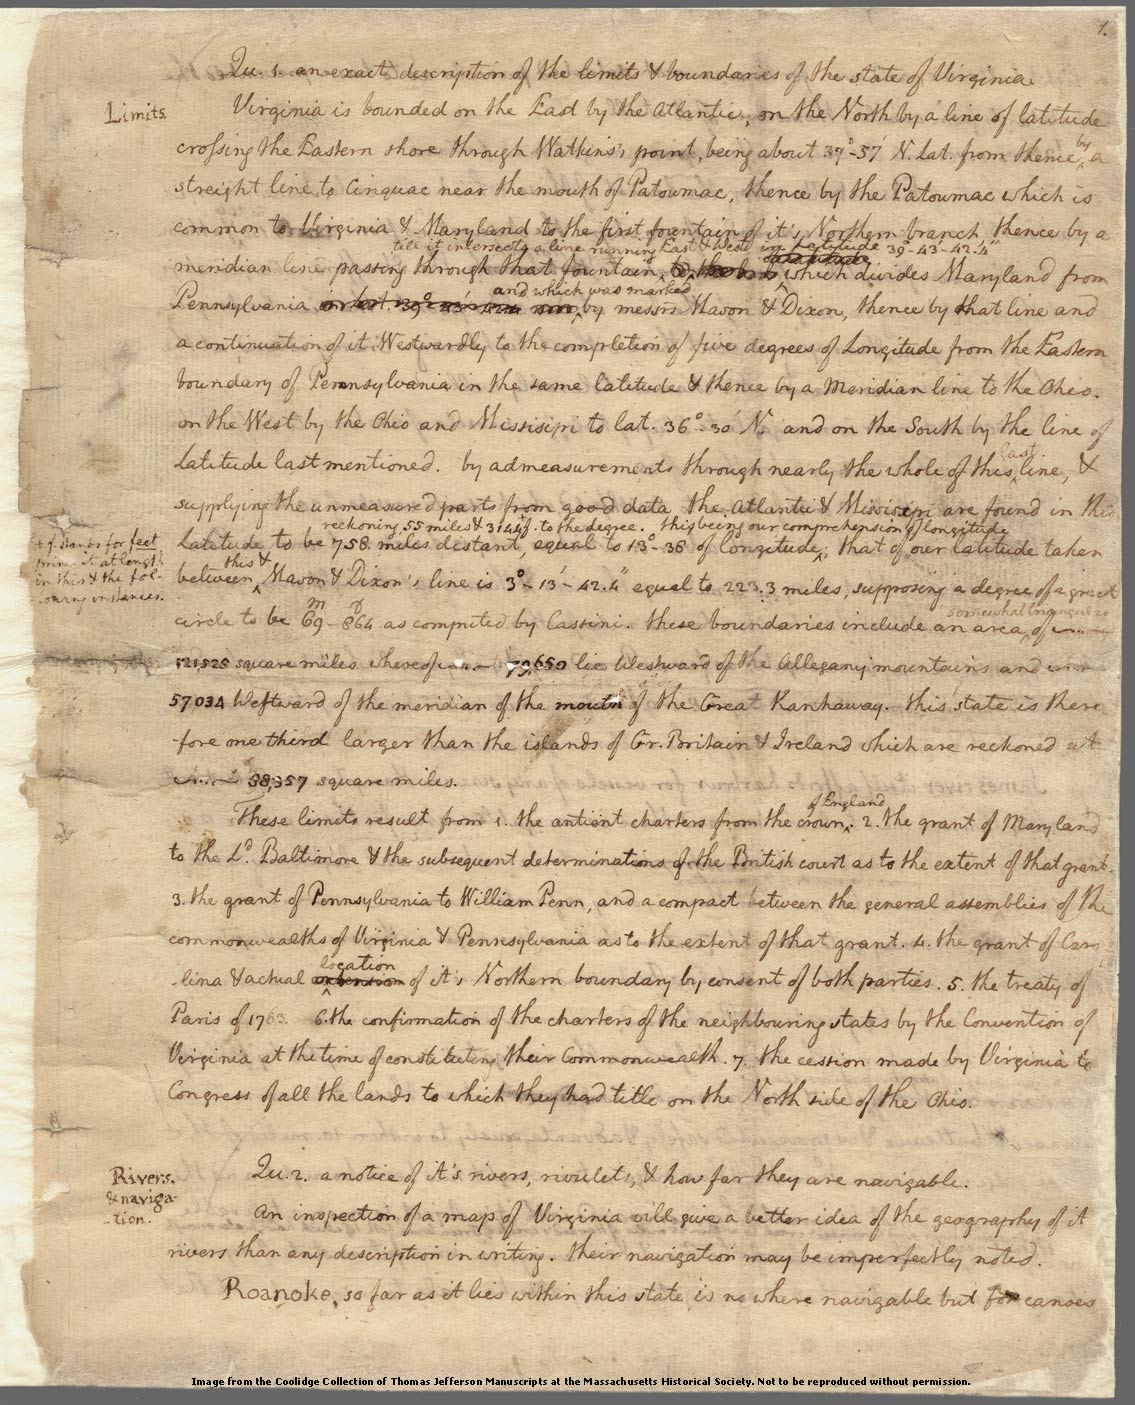 1.
Qu. 1. an exact description of the limits & boundaries of the state of Virginia
Limits.
Virginia is bounded on the East by the Atlantic, on the North by a line of latitude
crossing the Eastern shore through Watkins's point, being about 37°-57' N. Lat. from thence by a
streight line to Cinquac near the mouth of Patowmac, thence by the Patowmac which is
common to Virginia & Maryland to the first fountain of it's Northern branch, thence by a
till it intersects a line running East & West in latitude 39°-43'-42.4"
meridian line passing through that fountain, which divides Maryland from
and which was marked
Pennsylvania by messrs Mason & Dixon, thence by that line and
a continuation of it Westwardly to the completion of five degrees of Longitude from the Eastern
boundary of Pennsylvania in the same latitude & thence by a Meridian line to the Ohio.
on the West by the Ohio and Missisipi to lat. 36°-30' N. and on the South by the line of
Latitude last mentioned. by admeasurements through nearly the whole of this last line, &
supplying the unmeasured parts from good data the Atlantic & Missisipi are found in this
reckoning 55 miles & 3144 f. to the degree. this being our comprehension of longitude
Latitude to be 758 miles distant, equal to 13°-38' of longitude; that of our latitude taken
between this & Mason & Dixon's line is 3°-13'-42.4" equal to 223.3 miles, supposing a degree of a great
+ f. stands for feet
print it at length
in this & the fol-
-lowing instances.
circle to be 69 m - 864 f as computed by Cassini. these boundaries include an area, somewhat triangular of
121525 square miles whereof 79,650 lie Westward of the Allegany mountains and
57034 Westward of the meridian of the mouth of the Great Kanhaway. this state is there
-fore one third larger than the islands of Gr. Britain & Ireland which are reckoned at
88,357 square miles.
These limits result from 1. the antient charters from the crown of England. 2. the grant of Maryland
to the Ld. Baltimore & the subsequent determinations of the British court as to the extent of that grant.
3. the grant of Pennsylvania to William Penn, and a compact between the general assemblies of the
commonwealths of Virginia & Pennsylvania as to the extent of that grant. 4. the grant of Caro
-lina & actual extension location of it's Northern boundary by consent of both parties. 5. the treaty of
Paris of 1763. 6. the confirmation of the charters of the neighbouring states by the Convention of
Virginia at the time of constituting their Commonwealth. 7. the cession made by Virginia to
Congress of all the lands to which they had title on the North side of the Ohio.
Rivers.
& naviga-
-tion.
Qu. 2. a notice of it's rivers, rivulets, & how far they are navigable.
An inspection of a map of Virginia will give a better idea of the geography of it
rivers than any description in writing. their navigation may be imperfectly noted.
Roanoke, so far as it lies within this state is no where navigable but for canoes
Image from the Coolidge Collection of Thomas Jefferson Manuscripts at the Massachusetts Historical Society. Not to be reproduced without permission.